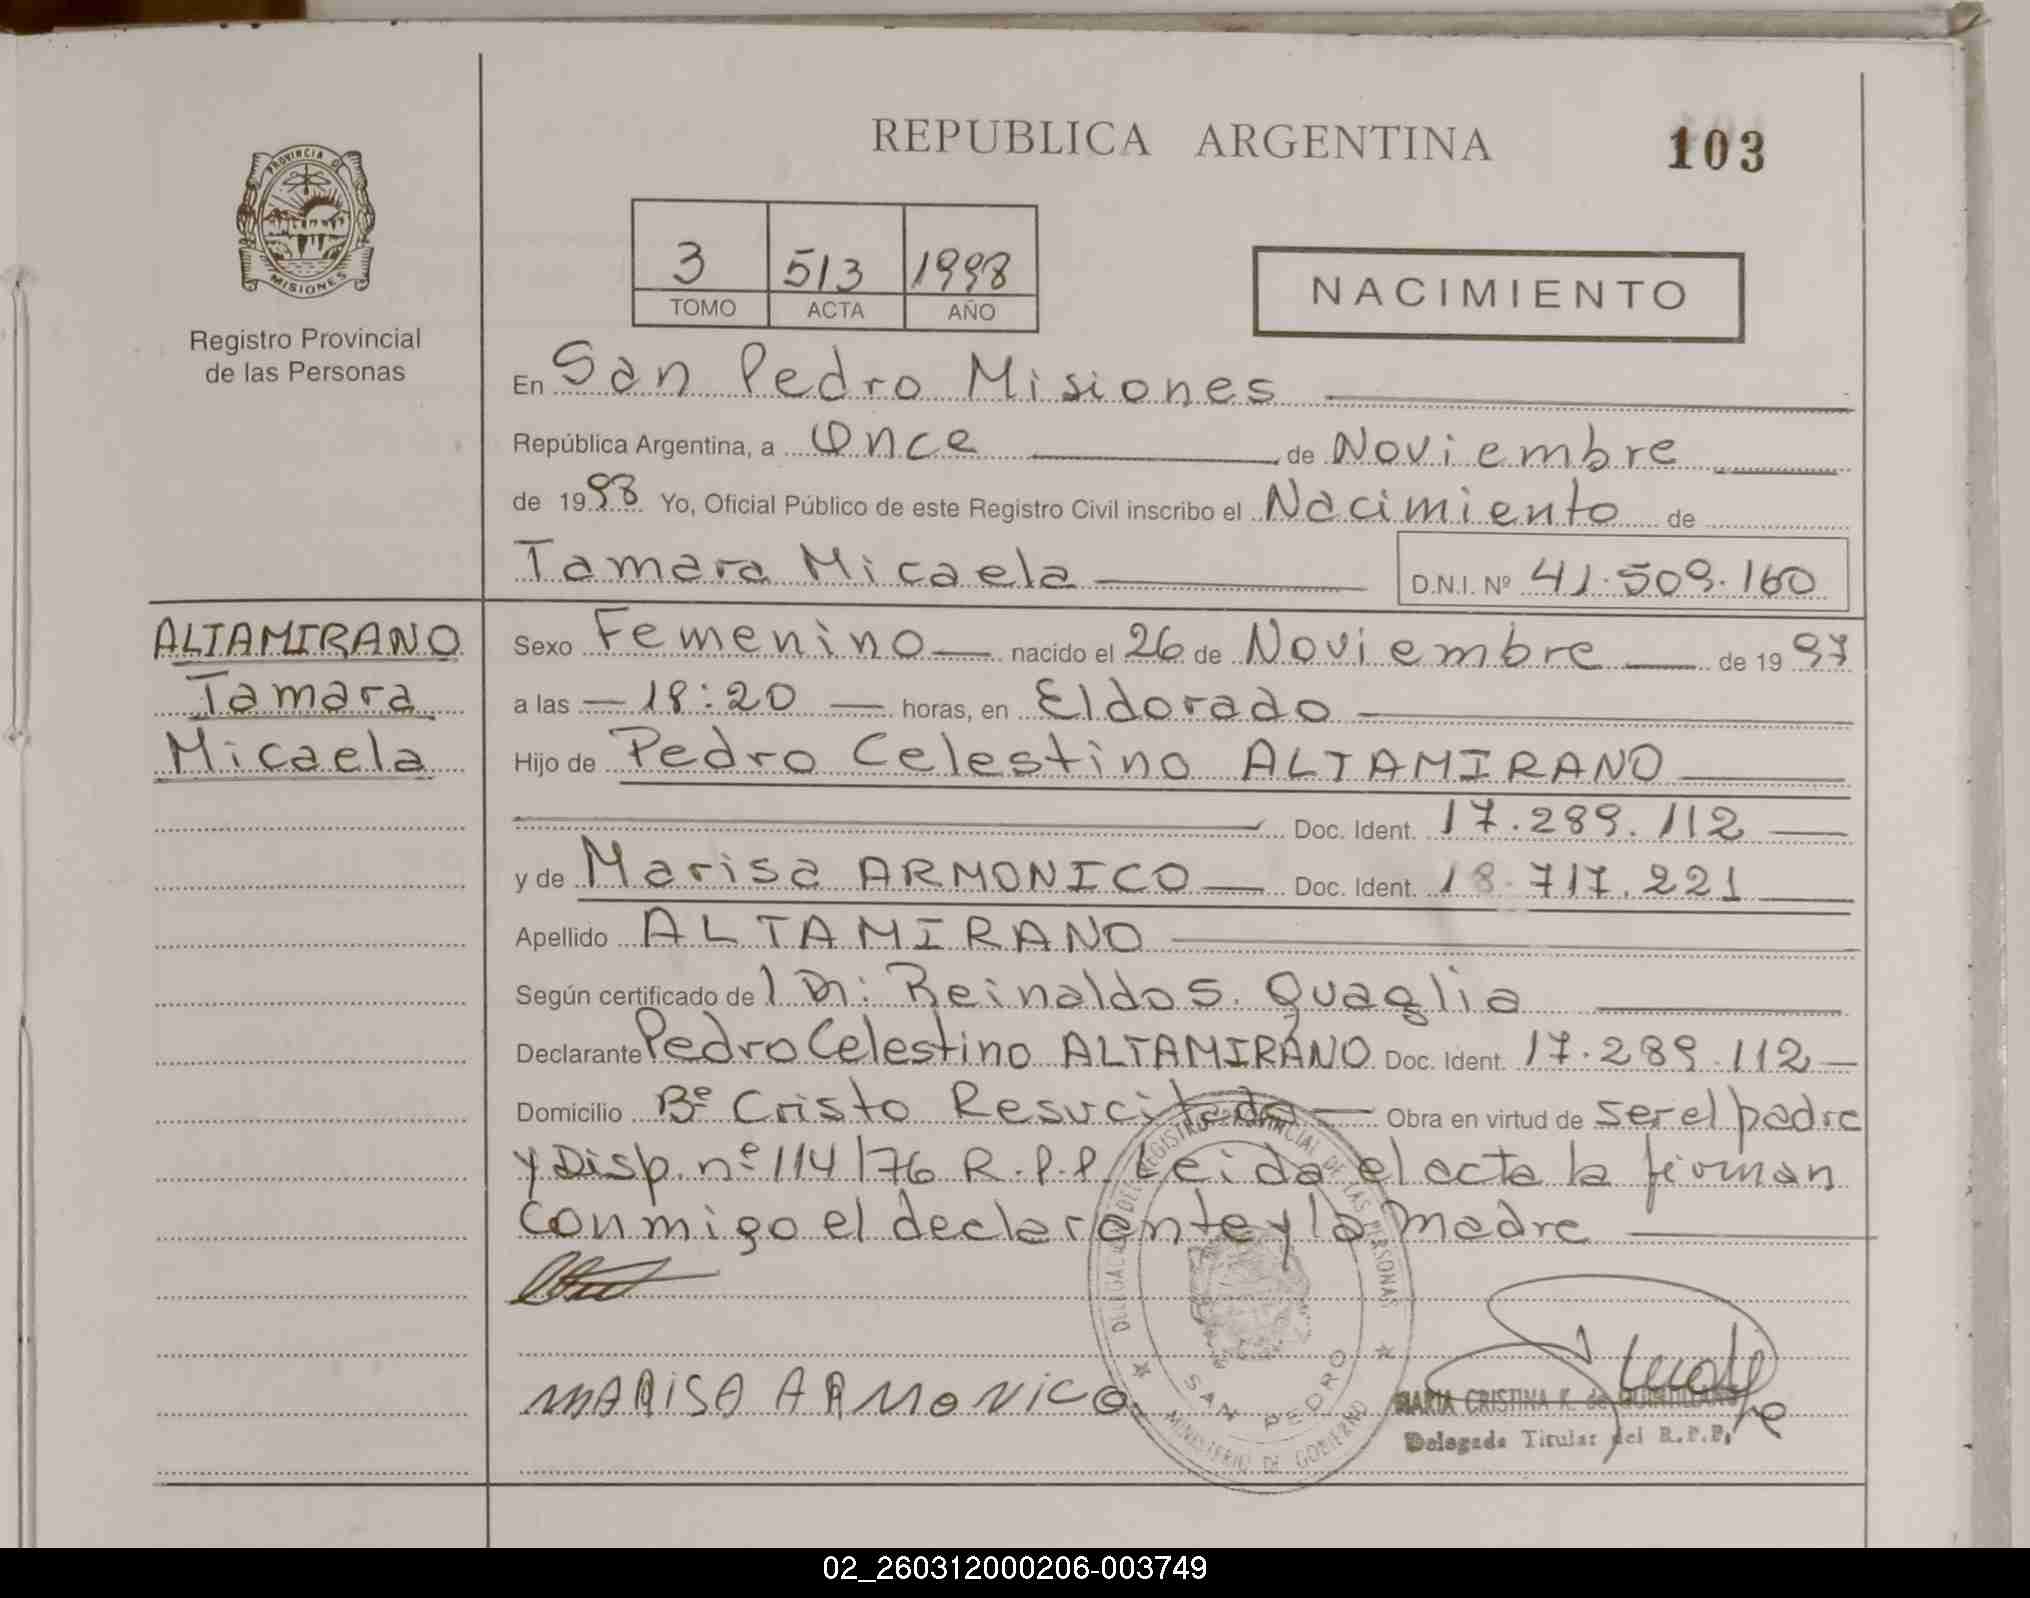 REPUBLICA ARGENTINA
103
PROVINCIA DE
MISIONES
Registro Provincial
de las Personas
3 513 1998
TOMO ACTA AÑO
NACIMIENTO
En San Pedro Misiones
República Argentina, a Once de Noviembre
de 1998 Yo, Oficial Público de este Registro Civil inscribo el Nacimiento de
Tamara Micaela D.N.I. Nº 41.509.160
ALTAMIRANO
Tamara
Micaela
Sexo Femenino nacido el 26 de Noviembre de 1997
a las 18:20 horas, en Eldorado
Hijo de Pedro Celestino ALTAMIRANO
Doc. Ident. 17.289.112
y de Marisa ARMONICO Doc. Ident. 18.717.221
Apellido ALTAMIRANO
Según certificado de l Dr: Reinaldo S. Quaglia
Declarante Pedro Celestino ALTAMIRANO Doc. Ident. 17.289.112
Domicilio Bº Cristo Resucitado Obra en virtud de ser el padre
y Disp. nº 114/76 R.P.P. Leida el acta la firman
conmigo el declarante y la madre
DELEGACION DEL REGISTRO PROVINCIAL DE LAS PERSONAS
SAN PEDRO
MINISTERIO DE GOBIERNO
MARISA ARMONICO
MARIA CRISTINA K. de QUINTILLANO
Delegada Titular del R.P.P.
02_260312000206-003749